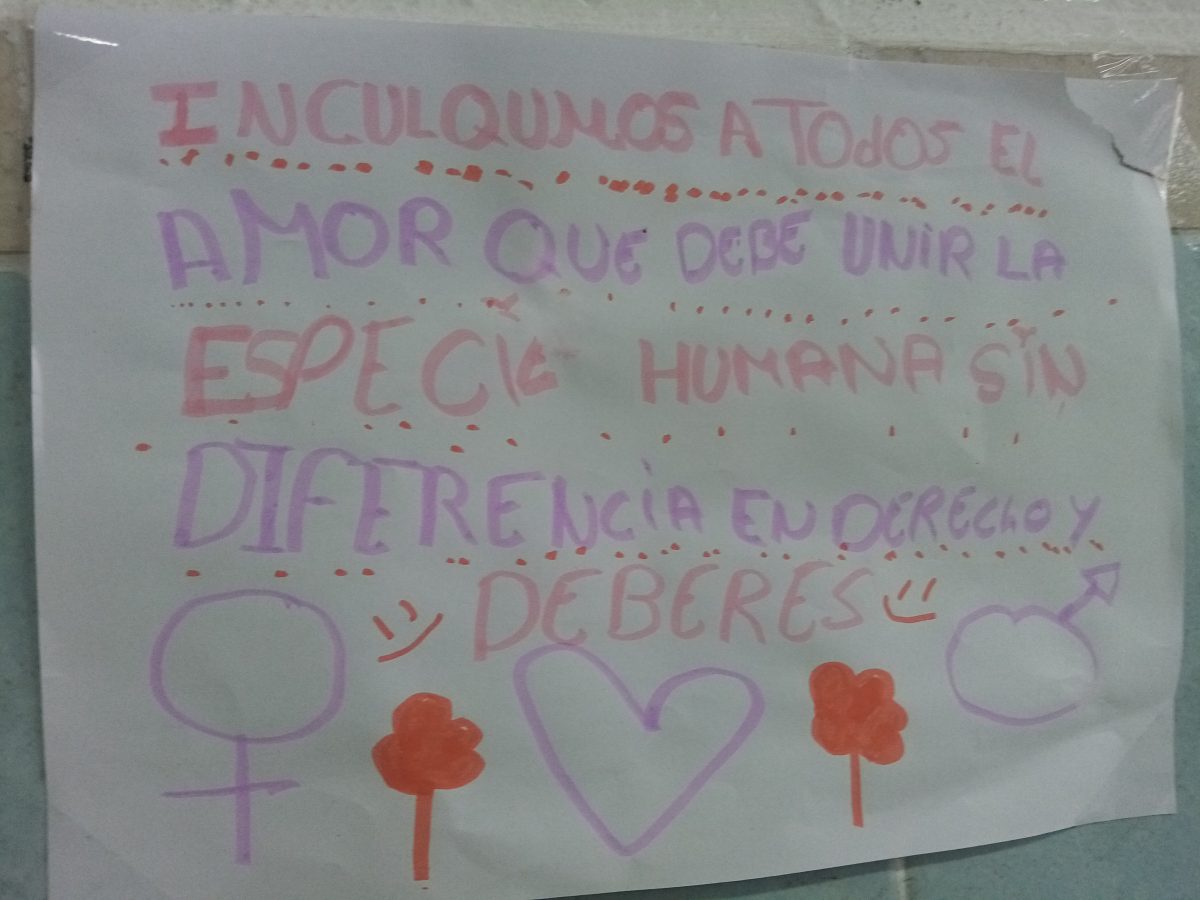 INCULQUMOS A TODOS EL
AMOR QUE DEBE UNIR LA
ESPECIE HUMANA SIN
DIFERENCIA EN DERECHO Y
DEBERES